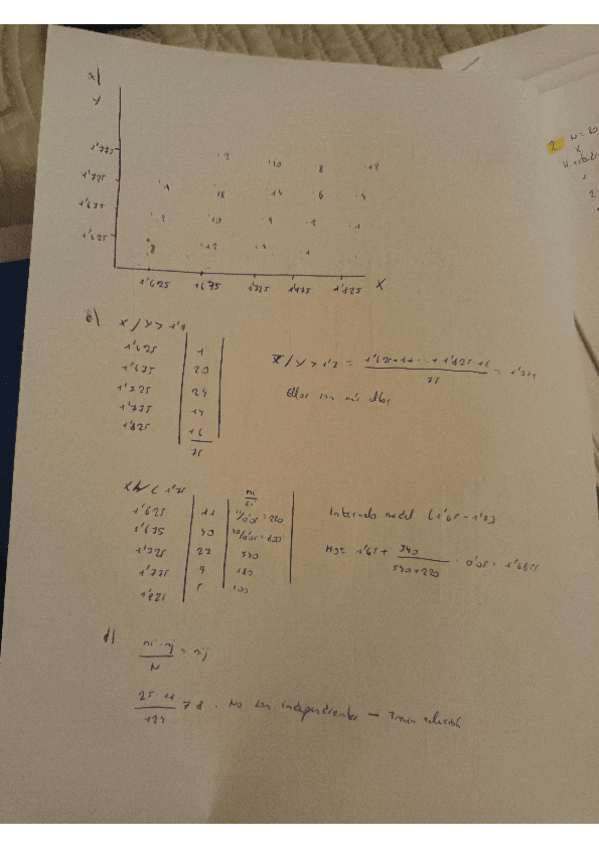 Y
1'775 ·2 ·10 ·8 ·12
1'725 ·1 ·18 ·14 ·6 ·4
1'675 ·2 ·10 ·9 ·2 ·1
1'625 8 ·12 ·4 ·1
1'625 1'675 1'725 1'775 1'825 X
X / Y > 1'7
1'625 1
1'675 20
1'725 24
1'775 14
1'825 16
75
X̄ / Y > 1'7 = 1'625·1+ ... + 1'825·16 / 75 =
Ellos son más altos
1'75
1'625 11 11/0'05 = 220
1'675 40 40/0'05 = 800
1'725 27 540
1'775 9 180
1'825 5 100
Intervalo modal (1'65 - 1'7)
Mo = 1'65 + 540 / 540+220 · 0'05 = 1'6855
d)
ni · nj / N = nij
25 · 11 / 124 ≠ 8 . No son independientes → Tienen relación
2. N = 20
X
1
2